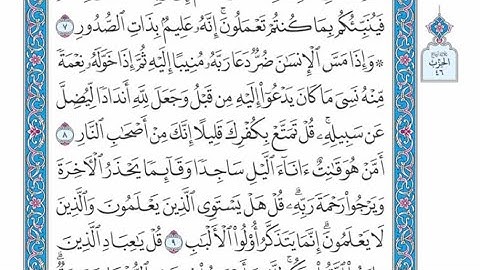 فَيُنَبِّئُكُم بِمَا كُنتُمْ تَعْمَلُونَۚ إِنَّهُۥ عَلِيمُۢ بِذَاتِ ٱلصُّدُورِ ٧
۞ وَإِذَا مَسَّ ٱلْإِنسَٰنَ ضُرٌّ دَعَا رَبَّهُۥ مُنِيبًا إِلَيْهِ ثُمَّ إِذَا خَوَّلَهُۥ نِعْمَةً
مِّنْهُ نَسِىَ مَا كَانَ يَدْعُوٓاْ إِلَيْهِ مِن قَبْلُ وَجَعَلَ لِلَّهِ أَندَادًا لِّيُضِلَّ
عَن سَبِيلِهِۦۚ قُلْ تَمَتَّعْ بِكُفْرِكَ قَلِيلًا إِنَّكَ مِنْ أَصْحَٰبِ ٱلنَّارِ ٨
أَمَّنْ هُوَ قَٰنِتٌ ءَانَآءَ ٱلَّيْلِ سَاجِدًا وَقَآئِمًا يَحْذَرُ ٱلْءَاخِرَةَ
وَيَرْجُواْ رَحْمَةَ رَبِّهِۦۗ قُلْ هَلْ يَسْتَوِى ٱلَّذِينَ يَعْلَمُونَ وَٱلَّذِينَ
لَا يَعْلَمُونَۗ إِنَّمَا يَتَذَكَّرُ أُوْلُواْ ٱلْأَلْبَٰبِ ٩ قُلْ يَٰعِبَادِ ٱلَّذِينَ
الحزب
٤٦